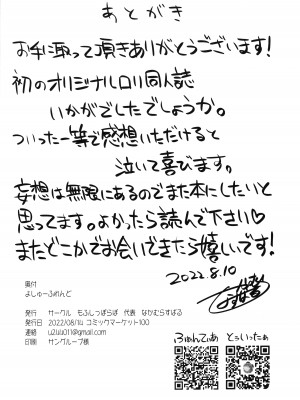 あとがき
お手に取って頂きありがとうございます!
初のオリジナルロリ同人誌
いかがでしたでしょうか。
ついったー等で感想いただけると
泣いて喜びます。
妄想は無限にあるのでまた本にしたいと
思ってます。よかったら読んで下さい♡
またどこかでお会いできたら嬉しいです!
2022.8.10
奥付
よしゅーふれんど
発行 サークル もふしつぽらぼ 代表 なかむらすばる
発行日 2022/08/14 コミックマーケット100
連絡
印刷 サングループ様
ふぁんてぃあ
とぅいったぁ